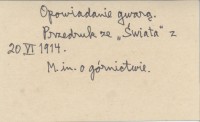 Opowiadanie gwarą.
Przedruk ze „Świata” z
20 VI 1914.
M. in. o górnictwie.